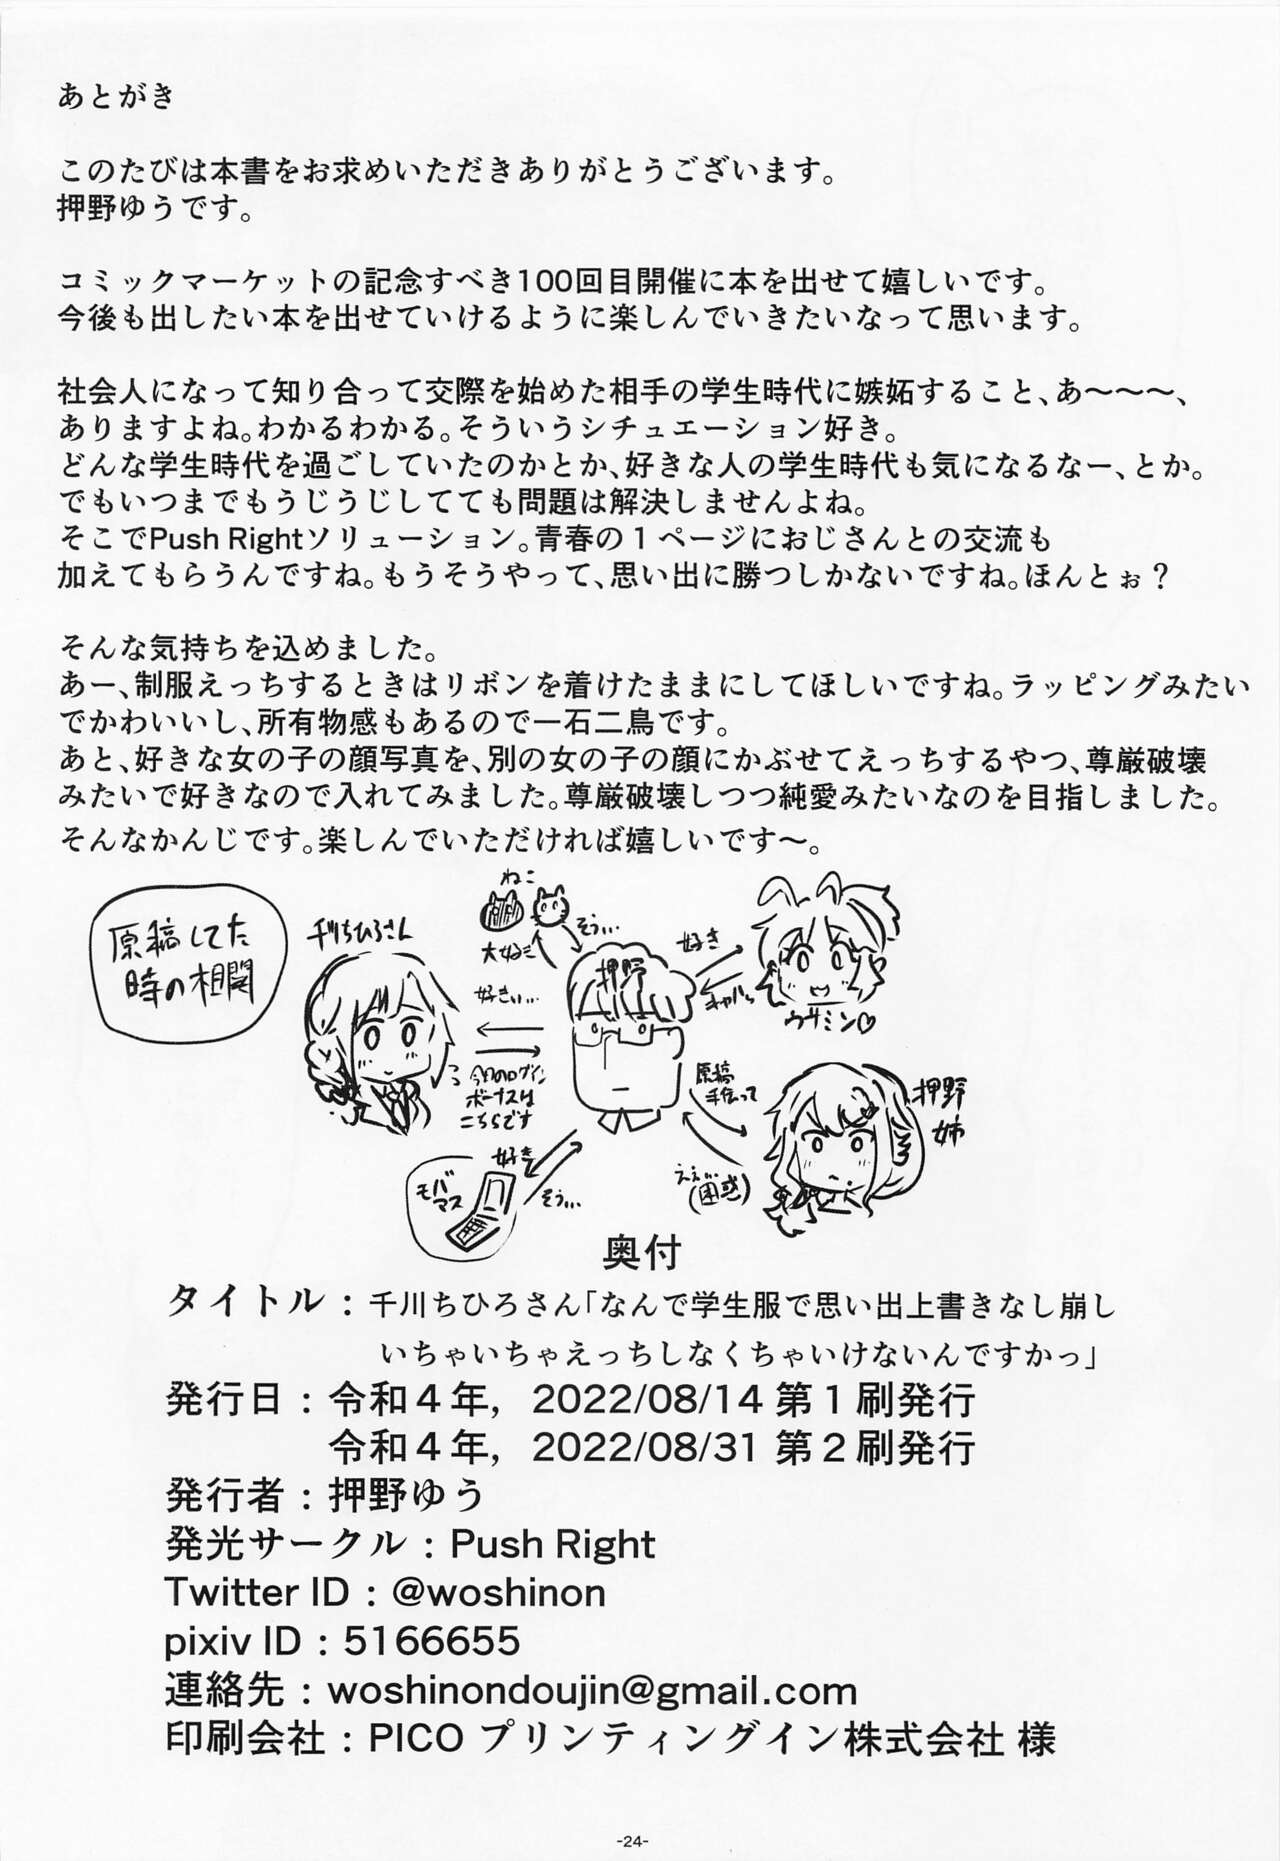 あとがき
このたびは本書をお求めいただきありがとうございます。
押野ゆうです。
コミックマーケットの記念すべき100回目開催に本を出せて嬉しいです。
今後も出したい本を出せていけるように楽しんでいきたいなって思います。
社会人になって知り合って交際を始めた相手の学生時代に嫉妬すること、あ〜〜〜、
ありますよね。わかるわかる。そういうシチュエーション好き。
どんな学生時代を過ごしていたのかとか、好きな人の学生時代も気になるなー、とか。
でもいつまでもうじうじしてても問題は解決しませんよね。
そこでPush Rightソリューション。青春の１ページにおじさんとの交流も
加えてもらうんですね。もうそうやって、思い出に勝つしかないですね。ほんとぉ？
そんな気持ちを込めました。
あー、制服えっちするときはリボンを着けたままにしてほしいですね。ラッピングみたい
でかわいいし、所有物感もあるので一石二鳥です。
あと、好きな女の子の顔写真を、別の女の子の顔にかぶせてえっちするやつ、尊厳破壊
みたいで好きなので入れてみました。尊厳破壊しつつ純愛みたいなのを目指しました。
そんなかんじです。楽しんでいただければ嬉しいです〜。
原稿してた
時の相関
千川ちひろさん
ねこ
大好き
そう…
押野
好き
キャハッ
ウサミン♡
好きぃ…
今日のログイン
ボーナスは
こちらです
原稿
手伝って
押野
姉
ええ…
(困惑)
好き
そう…
モバ
マス
奥付
タイトル：千川ちひろさん「なんで学生服で思い出上書きなし崩し
いちゃいちゃえっちしなくちゃいけないんですかっ」
発行日：令和４年，2022/08/14 第１刷発行
令和４年，2022/08/31 第２刷発行
発行者：押野ゆう
発光サークル：Push Right
Twitter ID：@woshinon
pixiv ID：5166655
連絡先：woshinondoujin@gmail.com
印刷会社：PICO プリンティングイン株式会社 様
-24-